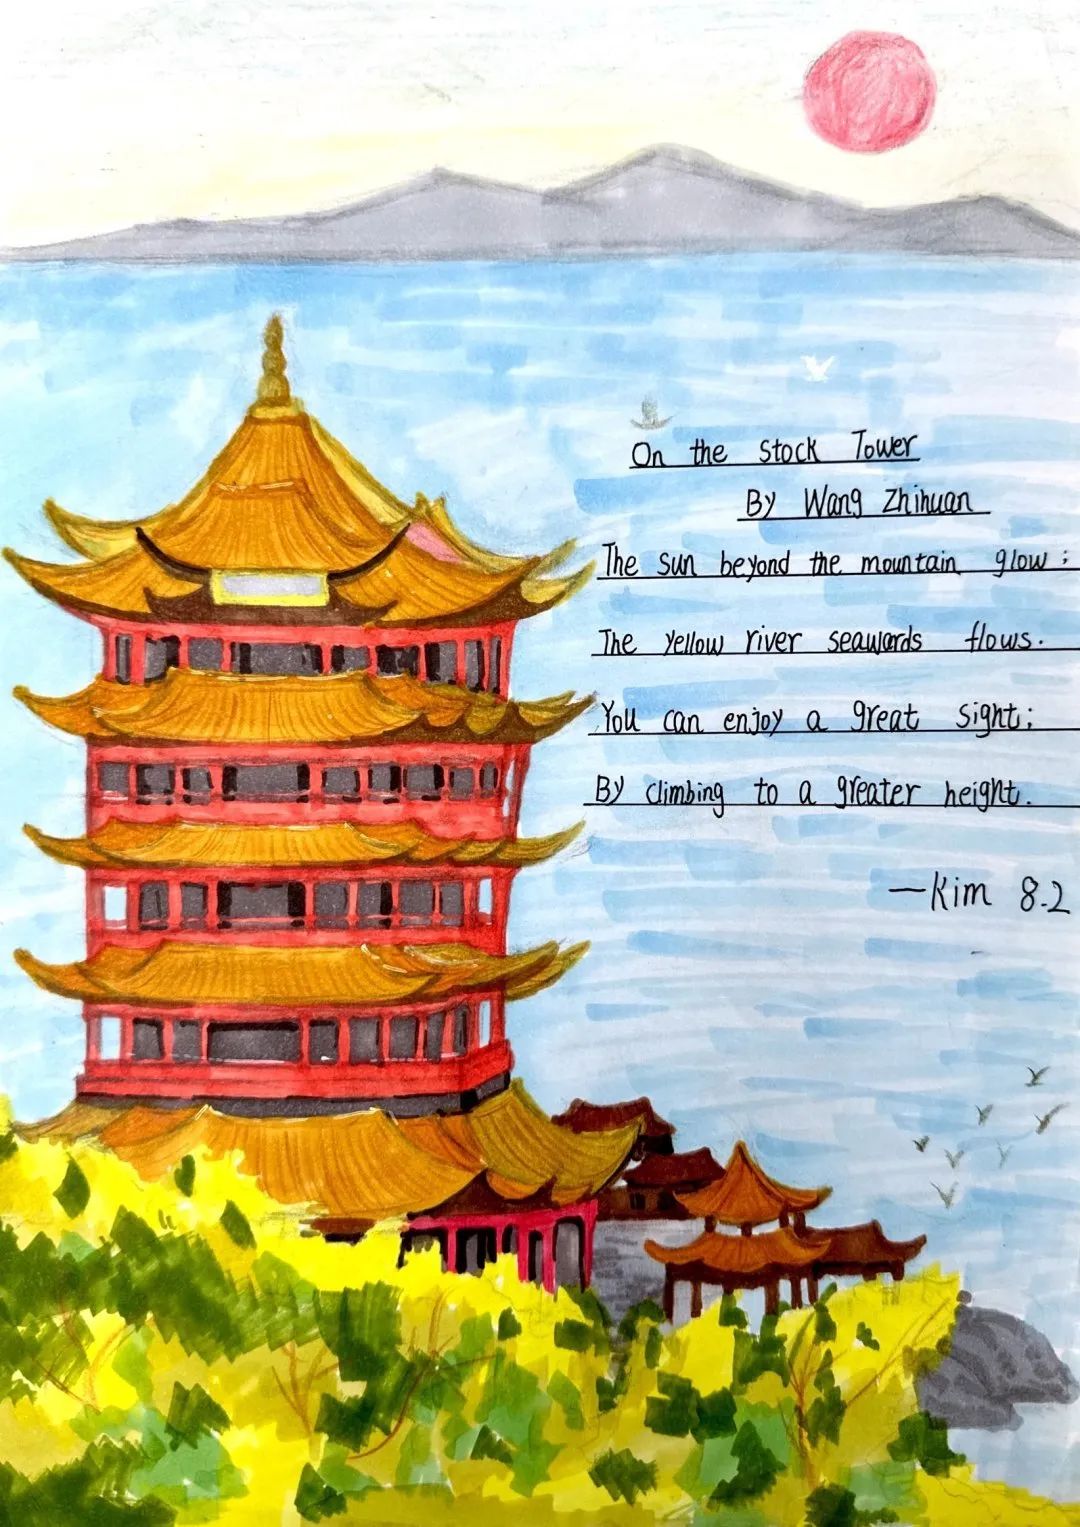 On the Stock Tower
By Wang Zhihuan
The sun beyond the mountain glow;
The yellow river seawards flows.
You can enjoy a great sight;
By climbing to a greater height.
—Kim 8.2